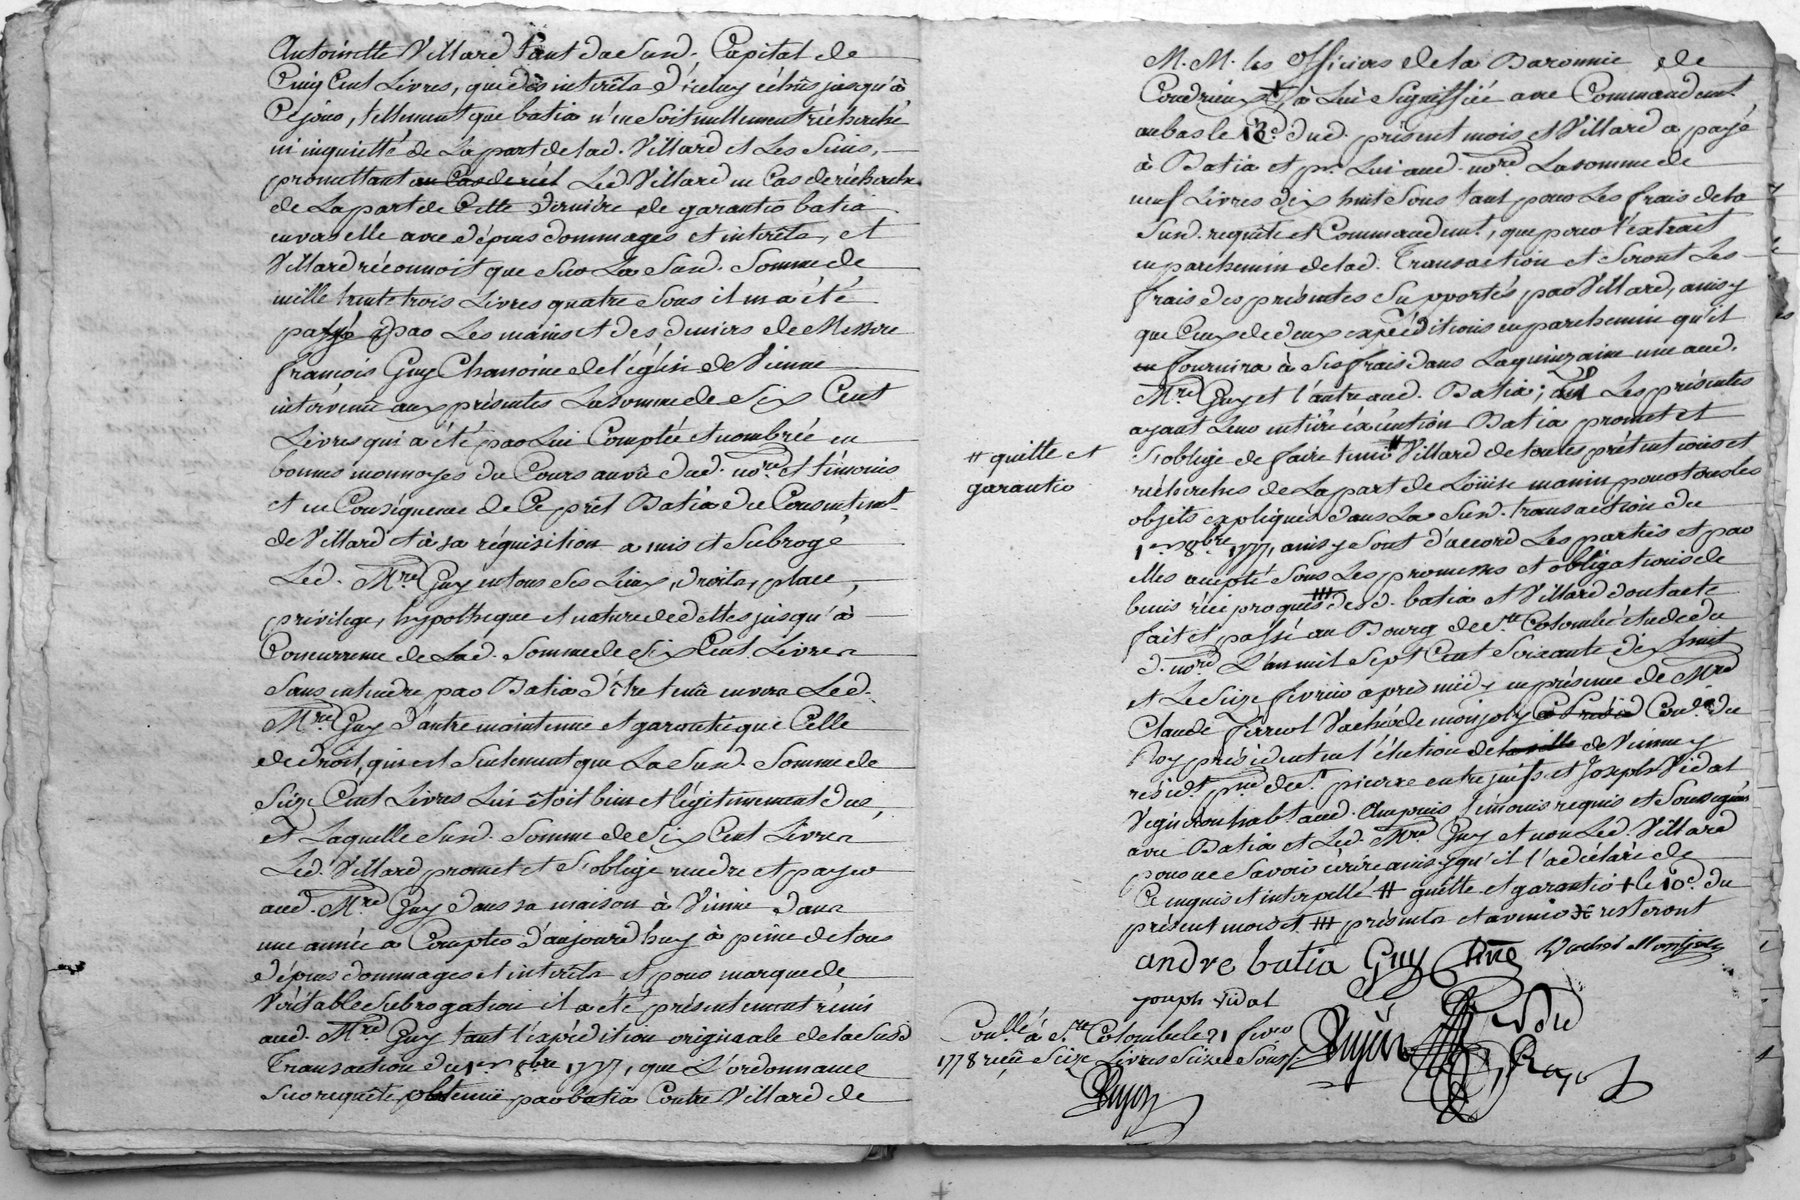 Antoinette Villard tant da Susd. Capital de
Cinq Cent Livres, que des interêts d'iceluy échûs jusqu'à
Ce jour, tellement que batia n'en soit nullement récherché
ni inquietté de La part de lad. Villard et Les Siens,
promettant en Cas de réel Led. Villard en Cas de récherche
de La part de Cette derniére de garantir batia
envers elle avec dépens dommages et interêts, et
Villard réconnoit que sur La Susd. Somme de
mille trente trois Livres quatre Sous il m a été
payé par Les mains et des deniers de Messire
françois Guy Chanoine de l'église de Vienne
intervenu aux présentes La somme de Six Cent
Livres qui a été par Lui Comptée et nombrée en
bonnes monnoyes du Cours au vû dud. nore. et témoins
et en Conséquence de Ce prêt Batia du Consentemt.
de Villard et à sa réquisition a mis et Subrogé
Led. Mre. Guy en tous ses Lieux, droits, place,
privilege, hypotheque et nature de dettes jusqu'à
Concurrence de Lad. Somme de Six Cent Livres
Sans entendre par Batia d'être tenu envers Led.
Mre. Guy d'autre maintenue et garantie que Celle
de droit, qui est Seulement que La Susd. Somme de
Seize Cent Livres Lui êtoit bien et légitimement due,
et Laquelle Susd. Somme de Six Cent Livres
Led. Villard promet et s'oblige rendre et payer
aud. Mre. Guy dans sa maison à Vienne dans
une année a Compter d'aujourd'huy à peine de tous
dépens dommages et interêts et pour marque de
Véritable Subrogation il a été présentement rémis
aud. Mre. Guy tant l'expédition originale de la Susd
Transaction du 1er 8bre 1777, que L'ordonnance
Sur requête obtenuë par batia Contre Villard de
M. M. les Officiers de la Baronnie de
Condrieux + à Lui Signiffiée avec Commandemt.
au bas le 13e. dud. présent mois et Villard a payé
à Batia et pr. Lui aud. nore. La somme de
neuf Livres dix huit Sous tant pour Les frais de la
Susd. requête et Commandemt., que pour l'extrait
en parchemin de lad. Transaction et Seront Les
frais des présentes Supportés par Villard, ainsy
que Ceux de deux expéditions en parchemin qu'il
en fournira à Ses frais dans La quinzaine une aud.
Mre. Guy et l'autre aud. Batia; Les présentes
ayant Leur entiére éxécution Batia promet et
s'oblige de faire tenir # Villard de toutes prétentions et
récherches de La part de Loüise manin pour tous les
objets expliqués dans La Susd. transaction du
# quitte et
garantir
1er 8bre. 1777, ainsy Sont d'accord Les parties et par
elles accepté Sous Les promesses et obligations de
biens réciproques ### desd. batia et Villard dont acte
fait et passé au Bourg de Ste. Colombe étude du
d. nore. L'an mil Sept Cent Soixante dix huit
et Le Seize fevrier après midy en présence de Mre
Claude ferreol Vachér de monjoly Conr. du
Roy président en l'élection de la ville de Vienne y
résidt. pnce. de St. pierre entre juifs et Joseph Vidal
Vigneron habt. aud. Ampuis témoins requis et Soussignés
avec Batia et Led. Mre. Guy et non Led. Villard
pour ne Savoir écrire ainsy qu'il l'a déclaré de
Ce enquis et interpellé # quitte et garantir + le 10e. du
présent mois et ### présents et avenir resteront
andre batia Guy Vachér Monjoly
joseph vidal
Conllé. à Ste. Colombe le 21 fevr
1778 reçu Seize Livres Seize Sous
Dujon
Dujon